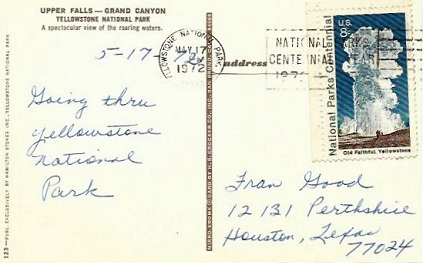 UPPER FALLS—GRAND CANYON
YELLOWSTONE NATIONAL PARK
A spectacular view of the roaring waters.
5-17-72
Going thru
Yellowstone
National
Park
YELLOWSTONE NATIONAL PARK
MAY 17
1972
address
NATIONAL PARKS
CENTENNIAL YEAR
U.S.
8c
National Parks Centennial
Old Faithful, Yellowstone
Fran Good
12 131 Perthshire
Houston, Texas
77024
123—PUBL. EXCLUSIVELY BY HAMILTON STORES INC., YELLOWSTONE NATIONAL PARK